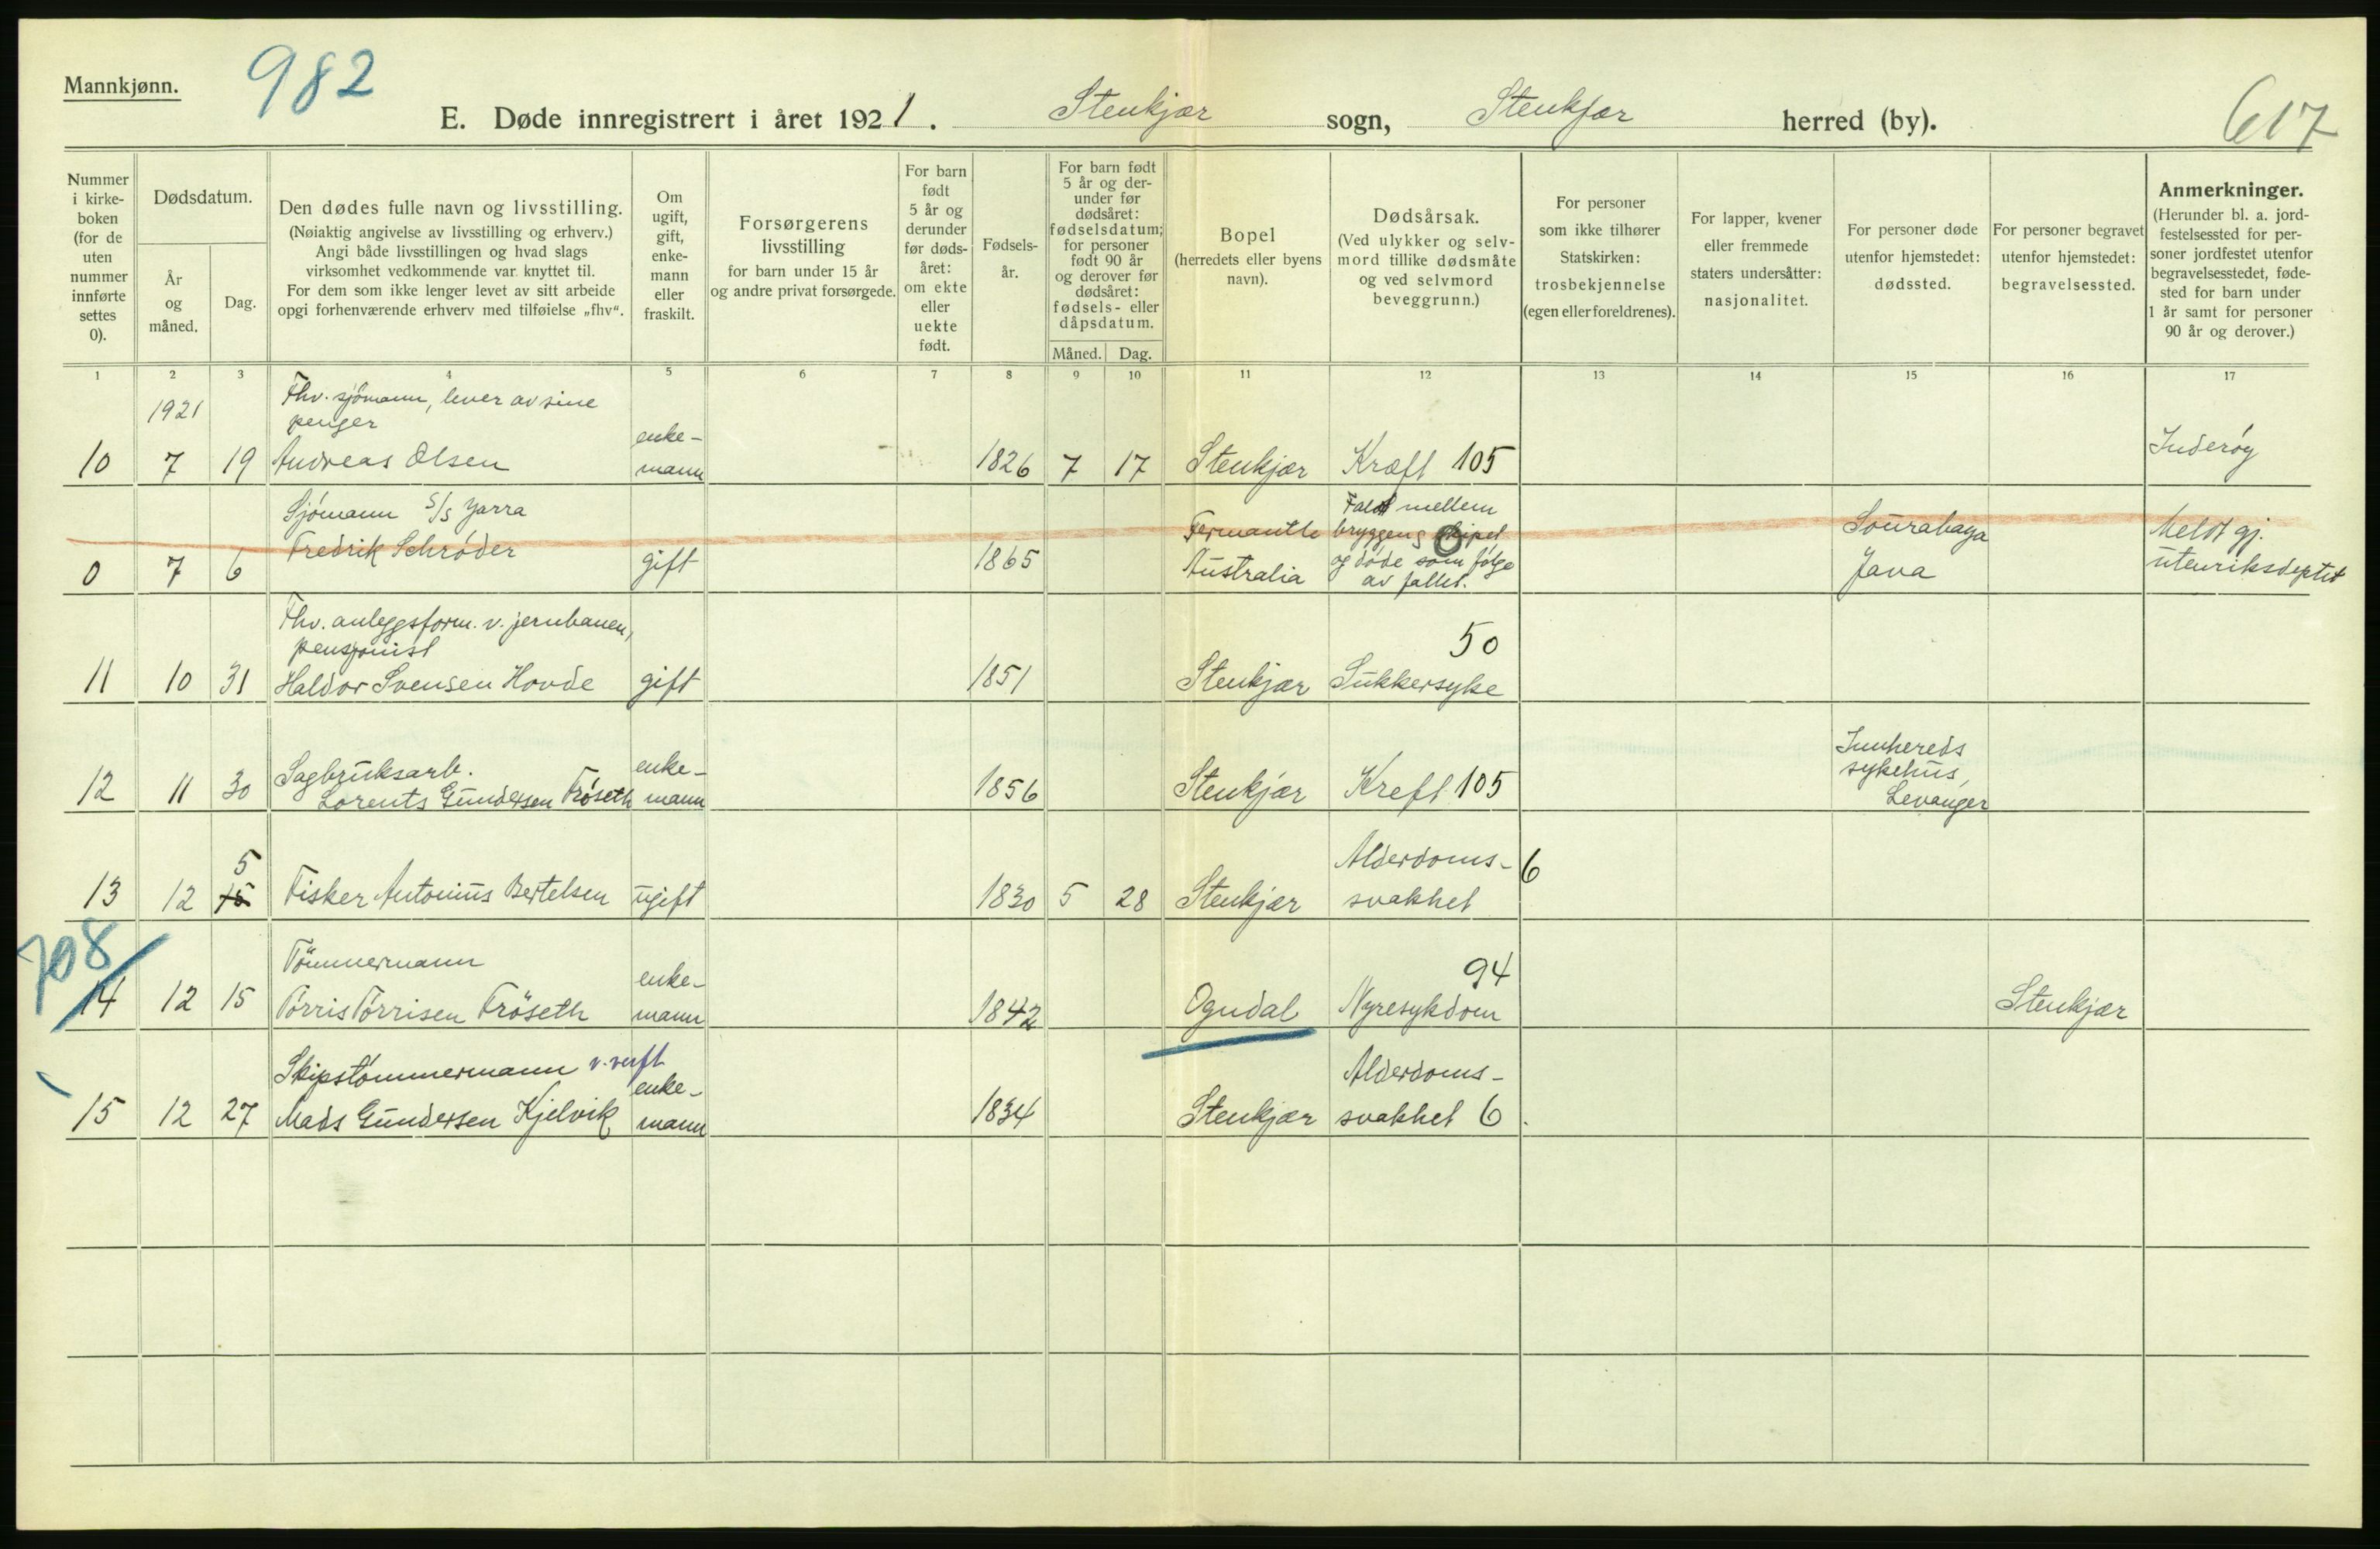 Mannkjønn.
982
E. Døde innregistrert i året 1921. Stenkjær sogn, Stenkjær herred (by).
617
Nummer i kirkeboken (for de uten nummer innførte settes 0).
Dødsdatum.
År og måned.
Dag.
Den dødes fulle navn og livsstilling.
(Nøiaktig angivelse av livsstilling og erhverv.)
Angi både livsstillingen og hvad slags
virksomhet vedkommende var knyttet til.
For dem som ikke lenger levet av sitt arbeide
opgi forhenværende erhverv med tilføielse „fhv“.
Om ugift, gift, enkemann eller fraskilt.
Forsørgerens
livsstilling
for barn under 15 år
og andre privat forsørgede.
For barn født 5 år og derunder før dødsåret: om ekte eller uekte født.
Fødselsår.
For barn født 5 år og derunder før dødsåret: fødselsdatum; for personer født 90 år og derover før dødsåret: fødsels- eller dåpsdatum.
Måned. Dag.
Bopel
(herredets eller byens
navn).
Dødsårsak.
(Ved ulykker og selvmord tillike dødsmåte og ved selvmord beveggrunn.)
For personer
som ikke tilhører
Statskirken:
trosbekjennelse
(egen eller foreldrenes).
For lapper, kvener
eller fremmede
staters undersåtter:
nasjonalitet.
For personer døde
utenfor hjemstedet:
dødssted.
For personer begravet
utenfor hjemstedet:
begravelsessted.
Anmerkninger.
(Herunder bl. a. jordfestelsessted for personer jordfestet utenfor begravelsesstedet, fødested for barn under 1 år samt for personer 90 år og derover.)
1 2 3 4 5 6 7 8 9 10 11 12 13 14 15 16 17
1921
Fhv. sjømann, lever av sine
penger
10 7 19 Andreas Olsen enkemann 1826 7 17 Stenkjær Kræft 105 Inderøy
Sjømann S/S Yarra
0 7 6 Fredrik Schrøder gift 1865
Fermantle
Australia
Falt mellem
bryggen g skipet
og døde som følge
av fallet.
Sourabaya
Java
Meldt gj.
utenriksdeptet
Fhv. anleggsform. v. jernbanen,
pensjonist
11 10 31 Haldor Svensen Hovde gift 1851 Stenkjær Sukkersyke 50
Sagbruksarb.
12 11 30 Lorents Gundersen Frøseth enkemann 1856 Stenkjær Kreft 105
Innhereds
sykehus,
Levanger
13 12 15 5 Fisker Antonius Bertelsen ugift 1830 5 28 Stenkjær Alderdomssvakhet 6
708
Tömmermann
14 12 15 Tørris Tørrisen Fröseth enkemann 1842 Ogndal Nyresykdom 94 Stenkjær
Skipstømmermann v. verft
15 12 27 Mads Gundersen Kjelvik enkemann 1834 Stenkjær Alderdomssvakhet 6